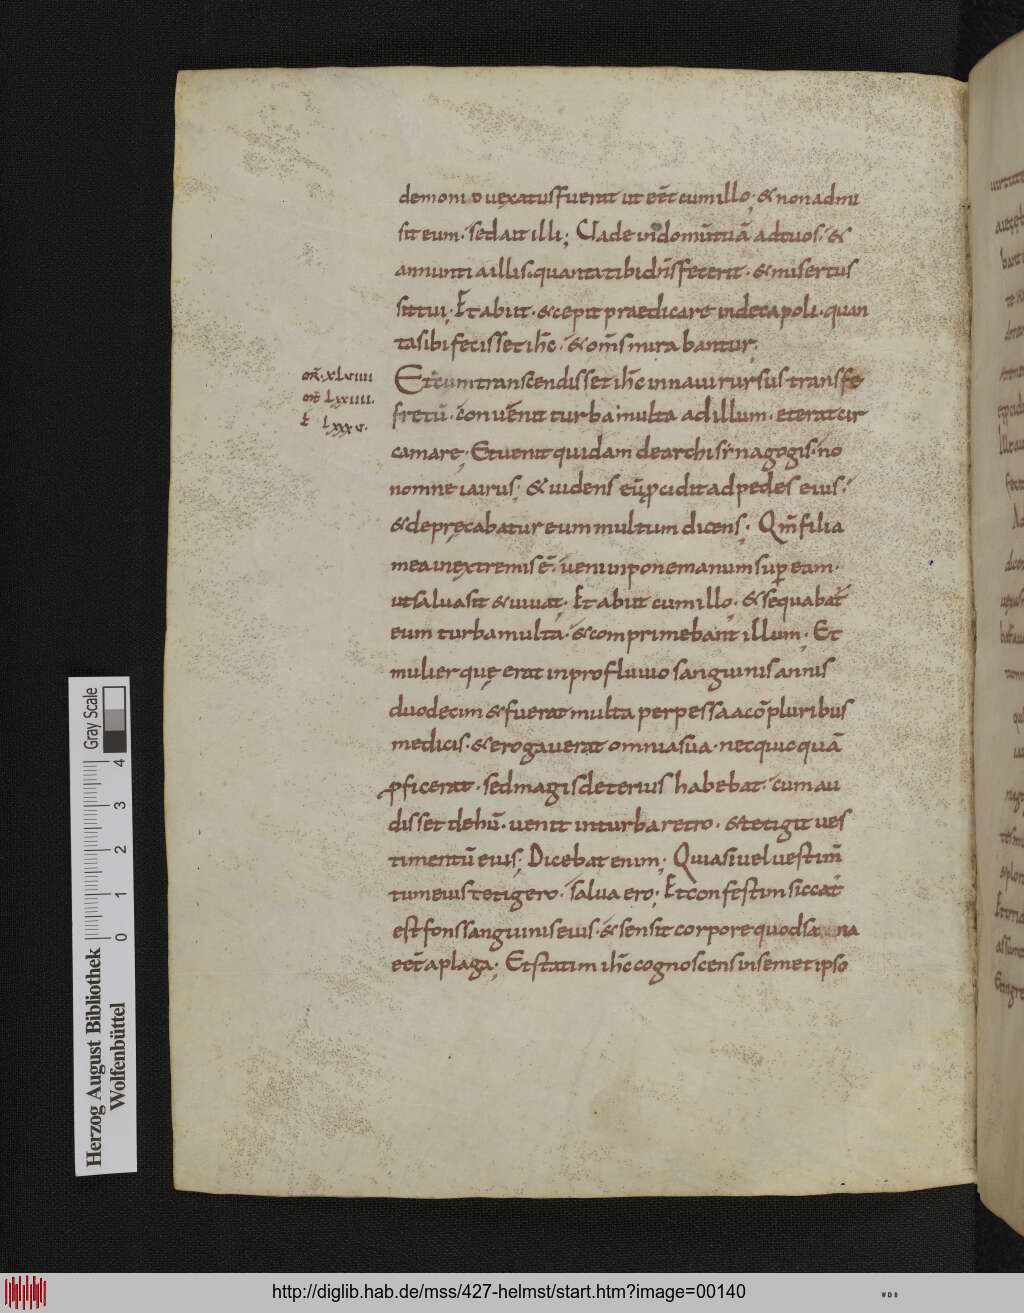 demonio uexatus fuerat ut eet̄ cum illo; & non admi
sit eum. sed ait illi; Uade in domū tuā ad tuos. &
annuntia illis. quanta tibi dn̄s fecerit. & misertus
sit tui; Et abiit. & cepit praedicare in decapoli. quan
ta sibi fecisset ih̄c. & om̄s mirabantur;
mr̄. xlviiii
mt̄ lxxiiii.
l lxxxv.
Et cum transcendisset ih̄c in naui rursus trans fe
fretū. conuenit turba multa ad illum. et erat cir
ca mare; Et uenit quidam de archisynagogis. no
nomne iairus; & uidens eū p̱cidit ad pedes eius.
& depręcabatur eum multum dicens; Qm̄ filia
mea in extremis ē. ueni inpone manum sup̱ eam.
ut salua sit & uiuat; Et abiit cum illo; & sequabat̄
eum turba multa. & comprimebant illum; Et
mulier quę erat in profluuio sanguinis annis
duodecim & fuerat multa perpessa a cōpluribus
medicis. & erogauerat omnia sua. nec quicquā
ꝓficerat. sed magis deterius habebat. cum au
disset de ih̄u. uenit in turba retro. & tetigit ues
timentū eius; Dicebat enim; Quia si uel uestim̄
tum eius tetigero. salua ero; Et confestim siccat̄
est fons sanguinis eius. & sensit corpore quod sa na
eet̄ a plaga; Et statim ih̄c cognoscens in semet ipso
Gray Scale
0 1 2 3 4
Herzog August Bibliothek
Wolfenbüttel
http://diglib.hab.de/mss/427-helmst/start.htm?image=00140